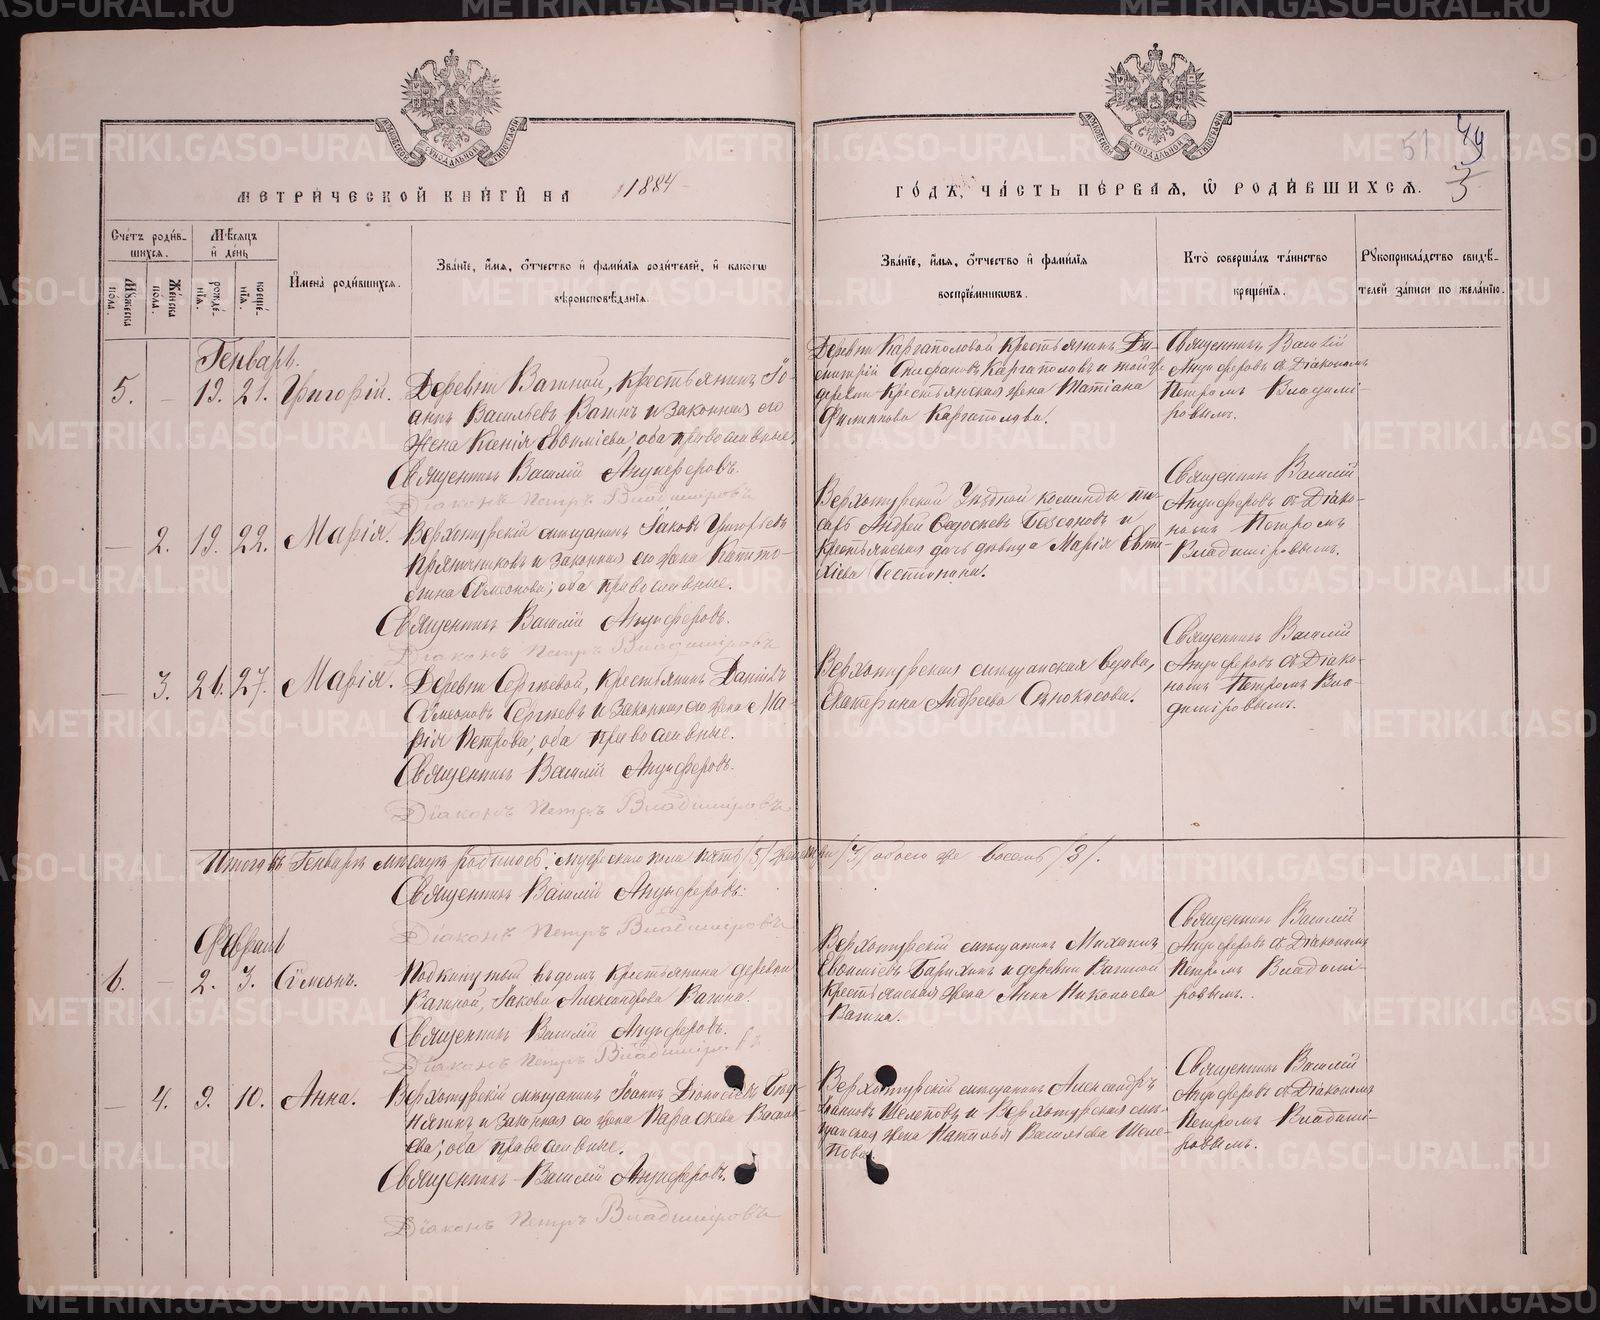 МЕТРИ́ЧЕСКОЙ КНИ́ГИ НА 1884
ГО́ДЪ, ЧА́СТЬ ПЕ́РВАЯ, Ѡ РОДИ́ВШИХСЯ.
51
3
Сче́тъ роди́в-
шихся.
Му́жеска
по́ла.
Же́нска
по́ла.
Мѣ́сяцъ
и де́нь
рожде́-
нїя.
креще́-
нїя.
И҆мена̀ роди́вшихся.
Зва́нїе, и҆́мя, ѻ҆́тчество и҆ фами́лїя роди́телей, и҆ како́гѡ
вѣроисповѣ́данїя.
Зва́нїе, и҆́мя, ѻ҆́тчество и҆ фами́лїя
воспрїе́мниковъ.
Кто̀ соверша́лъ та́инство
креще́нїя.
Рꙋкоприкла́дство свидѣ́-
телей за́писи по жела́нїю.
Генварь.
5. — 19. 21. Григорій.
Деревни Вагиной, крестьянинъ Іо-
аннъ Васильевъ Вагинъ и законная его
жена Ксенія Евѳиміева; оба православные.
Священникъ Василій Анциферовъ.
Діаконъ Петръ Владиміровъ
Деревни Каргаполовой крестьянинъ Ди-
митрій Епифановъ Каргаполовъ и той же
деревни крестьянская жена Татіана
Филиппова Каргаполова.
Священникъ Василій
Анциферовъ съ Діакономъ
Петромъ Владимі-
ровымъ.
— 2. 19. 22. Марія.
Верхотурскій мѣщанинъ Іаковъ Григорьевъ
Пряничниковъ и законная его жена Капито-
лина Сѵмеонова; оба православные.
Священникъ Василій Анциферовъ.
Діаконъ Петръ Владиміровъ
Верхотурской Уѣздной команды пи-
сарь Андрей Ѳедосѣевъ и
крестьянская дочь дѣвица Марія Евти-
хіева
Священникъ Василій
Анциферовъ съ Діако-
номъ Петромъ
Владиміровымъ.
— 3. 26. 27. Марія.
Деревни Сергѣевой, крестьянинъ Даніилъ
Сѵмеоновъ Сергѣевъ и законная его жена Ма-
рія Петрова; оба православные.
Священникъ Василій Анциферовъ.
Діаконъ Петръ Владиміровъ
Верхотурская мѣщанская вдова,
Екатерина Андреева Синокосова.
Священникъ Василій
Анциферовъ съ Діако-
номъ Петромъ Вла-
диміровымъ.
Итого въ Генварѣ мѣсяцѣ родилось: мужескаго пола пять /5/ женска три /3/ обоего же восемь /8/.
Священникъ Василій Анциферовъ.
Діаконъ Петръ Владиміровъ
Февраль
6. — 2. 3. Сѵмеонъ.
Подкинутый въ домъ крестьянина деревни
Вагиной, Іакова Александрова Вагина.
Священникъ Василій Анциферовъ.
Діаконъ Петръ Владиміровъ
Верхотурскій мѣщанинъ Михаилъ
Евѳиміевъ и деревни Вагиной
крестьянская жена Анна Николаева
Вагина.
Священникъ Василій
Анциферовъ съ Діакономъ
Петромъ Владимі-
ровымъ.
— 4. 9. 10. Анна.
Верхотурскій мѣщанинъ Іоаннъ Діонисіевъ
и законная его жена Параскева Василь-
ева; оба православные.
Священникъ Василій Анциферовъ.
Діаконъ Петръ Владиміровъ
Верхотурскій мѣщанинъ Александръ
Іоанновъ Шелеповъ и Верхотурская мѣ-
щанская жена Наталья Васильева Шеле-
пова.
Священникъ Василій
Анциферовъ съ Діакономъ
Петромъ Владимі-
ровымъ.
METRIKI.GASO-URAL.RU